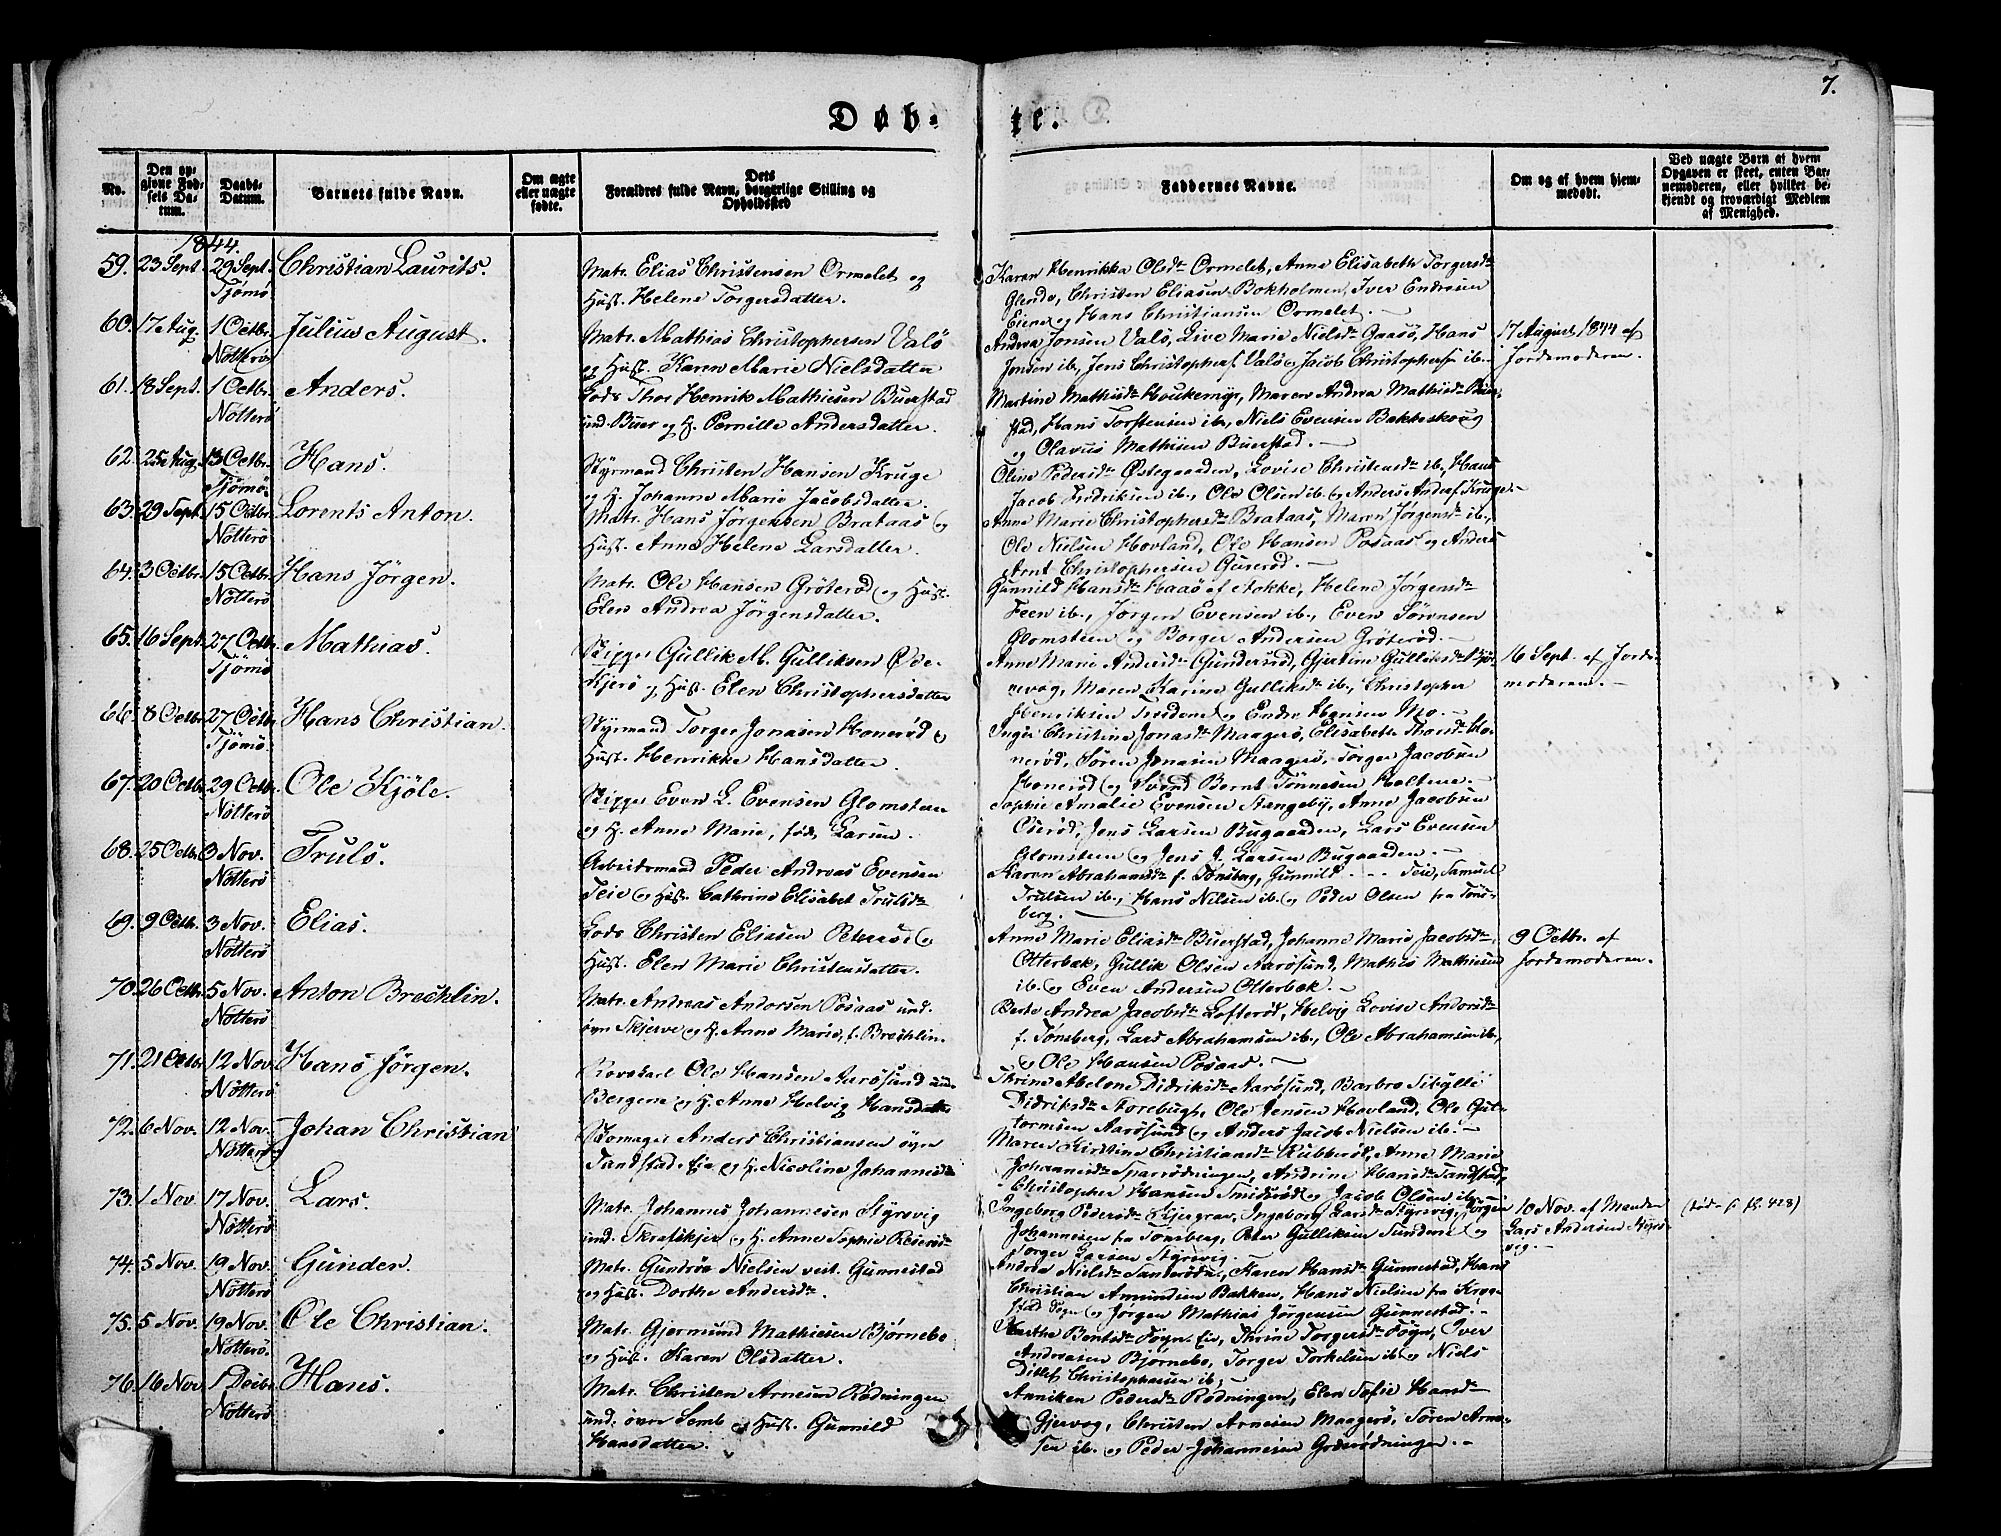 7.
Døb- te.
No.
Den opgivne Fødsels Datum.
Daabs-Datum.
Barnets fulde Navn.
Om ægte eller uægte fødte.
Dets Forældres fulde Navn, borgerlige Stilling og Opholdssted
Faddernes Navne.
Om og af hvem hjemmedøbt.
Ved uægte Børn af hvem Opgaven er skeet, enten Barnemoderen, eller hvilket bekjendt og troværdigt Medlem af Menighed.
1844.
59. 23 Sept. 29 Sept. Tjømø Christian Laurits.
Matr. Elias Christensen Ormelet og
Hust. Helene Torgersdatter.
Karen Henrikka Olsdtr Ormelet, Anne Elisabeth Torgersdtr
Glende, Christen Eliasen Bokholmen, Iver Endresen
Eiene og Hans Christiansen Ormelet.
60. 17 Aug. 1 Octbr. Nøtterø Julius August.
Matr. Mathias Christophersen Valø
og Hust. Karen Marie Nielsdatter
Andrea Jonsen Valø, Live Marie Nielsdtr Gaasø, Hans
Jonsen ib., Jens Christophers. Valø og Jacob Christophers. ib.
17 August 1844 af
Jordemoderen.
61. 18 Sept. 1 Octbr. Nøtterø Anders.
Gods Thor Henrik Mathiesen Buerstad
und. Buer og H. Pernille Andersdatter.
Martine Mathisdtr Houkemyr, Maren Andrea Mathisdtr Buer-
stad, Hans Torstensen ib., Niels Evensen Bakkeskoug
og Olavus Mathisen Buerstad.
62. 25 Aug. 13 Octbr. Tjømø Hans.
Styrmand Christen Hansen Kruge
og H. Johanne Marie Jacobsdatter.
Oline Pedersdtr Østegaarden, Lovise Christensdtr ib., Hans
Jacob Fredriksen ib., Ole Olsen ib. og Anders Anders. Kruge.
63. 29 Sept. 15 Octbr. Nøtterø Lorents Anton.
Matr. Hans Jörgensen Brataas og
Hust. Anne Helene Larsdatter.
Anne Marie Christophersdtr Brataas, Maren Jörgensdtr ib.,
Ole Nielsen Hovland, Ole Hansen Posaas og Anders
Arnt Christophersen Gunerød.
64. 3 Octbr. 15 Octbr. Nøtterø Hans Jörgen.
Matr. Ole Hansen Gröterød og Hust.
Elen Andrea Jörgensdatter.
Gunnild Hansdtr Haaø af Stokke, Helene Jörgensdtr
Feen ib., Jorgen Evensen ib., Even Sörensen
Glomsteen og Borger Andersen Gröterød.
65. 16 Sept. 27 Octbr. Tjømø Mathias.
Skipper Gullik M. Gulliksen Øde-
Kjerø og Hust. Elen Christophersdatter
Anne Marie Andersdtr Gundersrød, Gjertine Gulliksdtr Bjør-
nevog, Maren Karine Gulliksdtr ib., Christopher
Henriksen Treidene og Endre Hansen Mo.
16 Sept. af Jorde-
moderen.
66. 8 Octbr. 27 Octbr. Tjømø. Hans Christian.
Styrmand Torger Jonasen Honerød og
Hust. Henrikke Hansdatter.
Inger Christine Jonasdtr Maagerø, Elisabeth Thorsdtr Ho-
nerød, Sören Jonasen Maagerø, Torger Jacobsen
Honerød og Svend Bernt Tönnesen Holtene.
67. 20 Octbr. 29 Octbr. Nøtterø Ole Kjöle.
Skipper Even L. Evensen Glomsteen
og H. Anne Marie, fød Larsen.
Sophie Amalie Evensen Stangeby, Anne Jacobsen
Oserød, Jens Larsen Bugaarden, Lars Evensen
Glomsteen og Jens J. Larsen Bugaarden.
68. 25 Octbr. 3 Nov. Nøtterø Truls.
Arbeidsmand Peder Andreas Evensen
Teie og Hust. Cathrine Elisabet Trulsdtr
Karen Abrahamsdtr f. Tønsberg, Gunnild - - - Teie, Samuel
Trulsen ib., Hans Nilsen ib. og Peder Olsen fra Tøns-
berg.
69. 9 Octbr. 3 Nov. Nøtterø Elias.
Gods Christen Eliasen Petersrød og
Hust. Elen Marie Christensdatter.
Anne Marie Eliasdtr Buerstad, Johanne Marie Jacobsdtr
Otterbæk, Gullik Olsen Aarøsund, Mathis Mathiesen
ib. og Even Andersen Otterbæk.
9 Octbr. af
Jordemoderen.
70. 26 Octbr. 5 Nov. Nøtterø Anton Brechlin.
Matr. Andreas Andersen Posaas und.
øvn Skjerve og H. Anne Marie, f. Brechlin.
Berte Andrea Jacobsdtr Lofterød, Helvig Lovise Andersdtr
f. Tønsberg, Lars Abrahamsen ib., Ole Abrahamsen ib.,
og Ole Hansen Posaas.
71. 21 Octbr. 12 Nov. Nøtterø Hans Jörgen.
Rorskarl Ole Hansen Aarøsund und.
Bergene og H. Anne Helvig Hansdatter
Thrine Helene Didriksdtr Aarøsund, Barbro Sibylle
Didriksdtr Storebugh, Ole Jensen Hovland, Ole Gut-
tormsen Aarøsund og Anders Jacob Nielsen ib.
72. 6 Nov. 12 Nov. Nøtterø Johan Christian
Skomager Anders Christiansen øvn
Sandstad Eie og H. Nicoline Johannesdtr
Maren Kirstine Christiansdtr Kubberød, Anne Marie
Johannesdtr Sparrødningen, Andrine Hansdtr Sandstad,
Christopher Hansen Smidsrød og Jacob Olsen ib.
73. 1 Nov. 17 Nov. Nøtterø Lars.
Matr. Johannes Johannesen Styrsvig
und. Skrafskjer og H. Anne Sophie Reiersdtr
Ingeborg Pedersdtr Kjærgrav, Ingeborg Larsdtr Styrsvig, Jörgen
Johannesen fra Tønsberg, Peter Gulliksen Sundene og
Torger Larsen Styrsvig.
10 Nov. af Manden
Lars Andersen Styrs-
vig.
(død fol. 428)
74. 5 Nov. 19 Nov. Nøtterø Gunder.
Matr. Gundrøs Nielsen vest. Gunnestad
og Hust. Dorthe Andersdtr.
Andrea Nielsdtr Sanderød, Karen Hansdtr Gunnestad, Hans
Christian Amundsen Bakken, Hans Nielsen fra
Sogn og Jørgen Mathias Jørgensen Gunnestad.
75. 5 Nov. 19 Nov. Nøtterø. Ole Christian.
Matr. Gjermund Mathiesen Bjørnebo
og Hust. Karen Olsdatter.
Marthe Berntsdtr Føyn Eie, Thrine Torgersdtr Føyn, Iver
Andreasen Bjørnebo, Torger Torkelsen ib. og Niels
Ditlef Christophersen ib.
76. 16 Nov. 1 Decbr. Nøtterø Hans.
Matr. Christen Arnesen Rødningen
und. øvre Semb og Hust. Gunnild
Hansdatter.
Anniken Pedersdtr Rødningen, Elen Sofie Hansdtr
Gjervog, Christen Arnesen Maagerø, Sören Arne-
sen ib. og Peder Johannesen Grøerødningen.